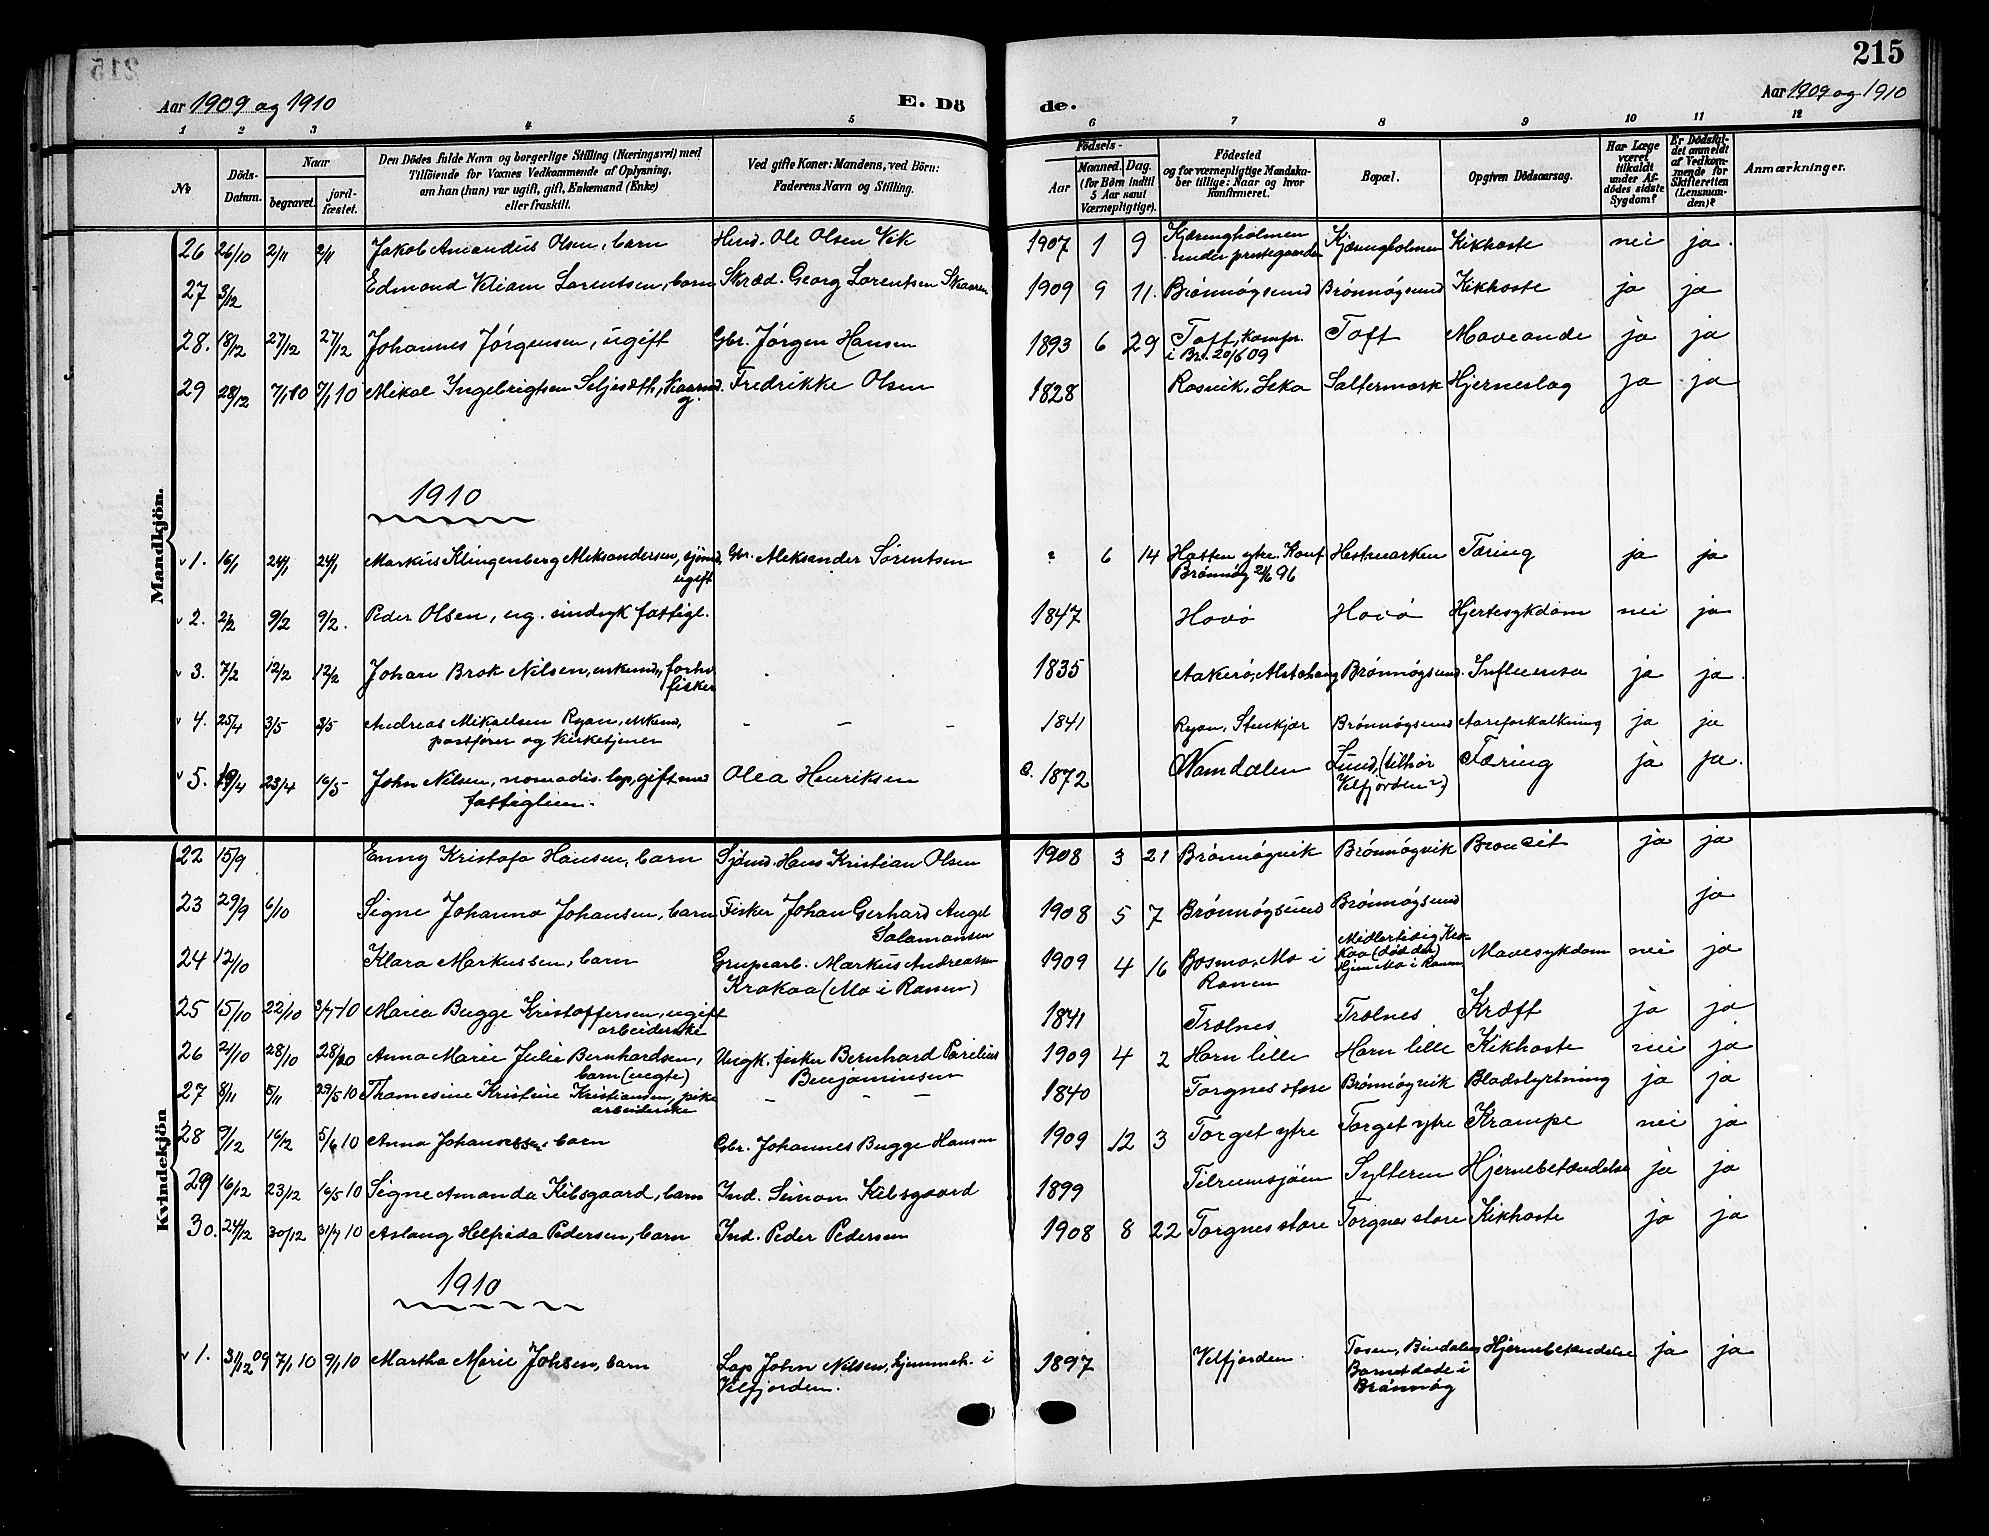 215
Aar 1909 og 1910
E. Dö
de.
Aar 1909 og 1910
1 2 3 4 5 6 7 8 9 10 11 12
No
Döds-Datum.
Naar
begravet.
jord-fæstet.
Den Dödes fulde Navn og borgerlige Stilling (Næringsvei) med
Tilföiende for Voxnes Vedkommende af Oplysning,
om han (hun) var ugift, gift, Enkemand (Enke)
eller fraskilt.
Ved gifte Koner: Mandens, ved Börn:
Faderens Navn og Stilling.
Födsels-
Aar
Maaned. Dag.
(for Börn indtil
5 Aar samt
Værnepligtige).
Födested
og for værnepligtige Mandska-
ber tillige: Naar og hvor
konfirmeret.
Bopæl.
Opgiven Dödsaarsag.
Har Læge
været
tilkaldt
under Af-
dödes sidste
Sygdom?
Er Dödsfal-
det anmeldt
af Vedkom-
mende for
Skifteretten
(Lensman-
den)?
Anmærkninger.
Mandkjön.
26 26/10 2/11 2/11 Jakob Amandus Olsen, barn Husd. Ole Olsen Vik 1907 1 9 Kjæringholmen under prestegaarden Kjæringholmen Kikhoste nei ja.
27 3/12 Edmond Viliam Lorentsen, barn Skræd. Georg Lorentsen Skaaren 1909 9 11. Brønnøysund Brønnøysund Kikhoste ja ja
28. 18/12 27/12 27/12 Johannes Jørgensen, ugift Gbr. Jørgen Hansen 1893 6 29 Toft, Komfr. i Br. 20/6 09 Toft Maveonde ja ja
29 28/12 7/1 10 7/1 10 Mikal Ingebrigtsen Seljesæth, Kaarmd. g. Fredrikke Olsen 1828 Rosvik, Leka Saltermark Hjerneslag ja ja
1910
v 1. 16/1 24/1 24/1 Markus Klingenberg Aleksandersen, sjømd, ugift Gbr. Aleksander Sørentsen ? 6 14 Horten ytre. Konf Brønnøy 21/6 96 Hestmarken Tæring ja ja
v 2. 2/2 9/2 9/2. Peder Olsen, ug. sindsyk fattigl. 1847 Havø Havø Hjertesykdom nei ja
v 3. 7/2 12/2 12/2 Johan Brok Nilsen, enkemd, forhv. fisker 1835 Aakerø, Alstahaug Brønnøysund. Influensa ja ja.
v 4. 25/4 3/5 3/5 Andreas Mikaelsen Ryan, enkemd, postfører og Kirketjener - - - 1841 Ryan, Stenkjær Brønnøysund Aareforkalkning ja ja
v 5. 19/4 23/4 16/5 John Nilsen, nomadis. lap, gift med fattiglem. Olea Henriksen c. 1872 Namdalen Lund, (tilhør Velfjorden?) Tæring ja ja.
Kvindekjön
22 15/9 Enny Kristofa Hansen, barn Sjømd. Hans Kristian Olsen 1908 3 21 Brønnøyvik Brønnøyvik Bronkit ja ja
23 29/9 6/10 Signe Johanna Johansen, barn Fisker Johan Gerhard Angel Salamonsen 1908 5 7 Brønnøysund Brønnøysund ja
24 12/10 Klara Markussen, barn Grupearb. Markus Andreassen Krokaa (Mo i Ranen) 1909 4 16 Bosmo, Mo i Ranen Midlertidig Krokaa (død der) Hjem Mo i Ranen Mavesykdom nei ja
25 15/10 22/10 31/7 10 Maria Bugge Kristoffersen, ugift arbeiderske 1841 Trælnes Trælnes Kræft ja ja
26 21/10 28/10 28/10 Anna Marie Julie Bernhardsen, barn (uegte) Ungk. fisker Bernhard Parelius Benjaminsen 1909 4 2 Horn lille Horn lille Kikhoste nei ja
27 8/11 5/11 29/5 10 Thomesine Kristine Kristiansen, pike arbeiderske - - - 1840 Torgnes store Brønnøyvik Blodstyrtning ja ja
28 9/12 16/12 5/6 10 Anna Johannessen, barn Gbr. Johannes Bugge Hansen 1909 12 3 Torget ytre Torget ytre Krampe nei ja
29 16/12 23/12 16/5 10 Signe Amanda Kibsgaard, barn Ind. Simon Kibsgaard 1899 Tilremsjøen Sylteren Hjernebetændelse ja ja
30. 24/12 30/12 31/7 10 Aslaug Helfrida Pedersen, barn Ind. Peder Pedersen 1908 8 22 Torgnes store Torgnes store Kikhoste ja ja
1910
v 1. 31/12 09 7/1 10 9/1 10 Martha Marie Johsen, barn Lap John Nilsen, hjemmeh. i Velfjorden. 1897 Velfjorden. Tosen, Bindalen Barnet døde i Brønnøy Hjernebetændelse ja ja